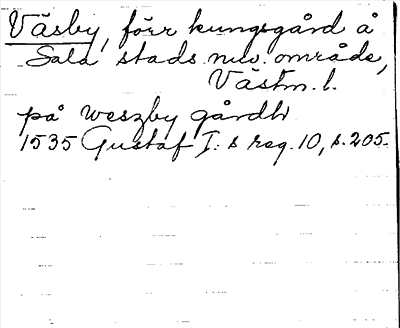 Väsby, förr kungsgård å
Sala stads nuv. område,
Västm. l.
på weszby gårdh
1535 Gustaf I:s reg. 10, s. 205.